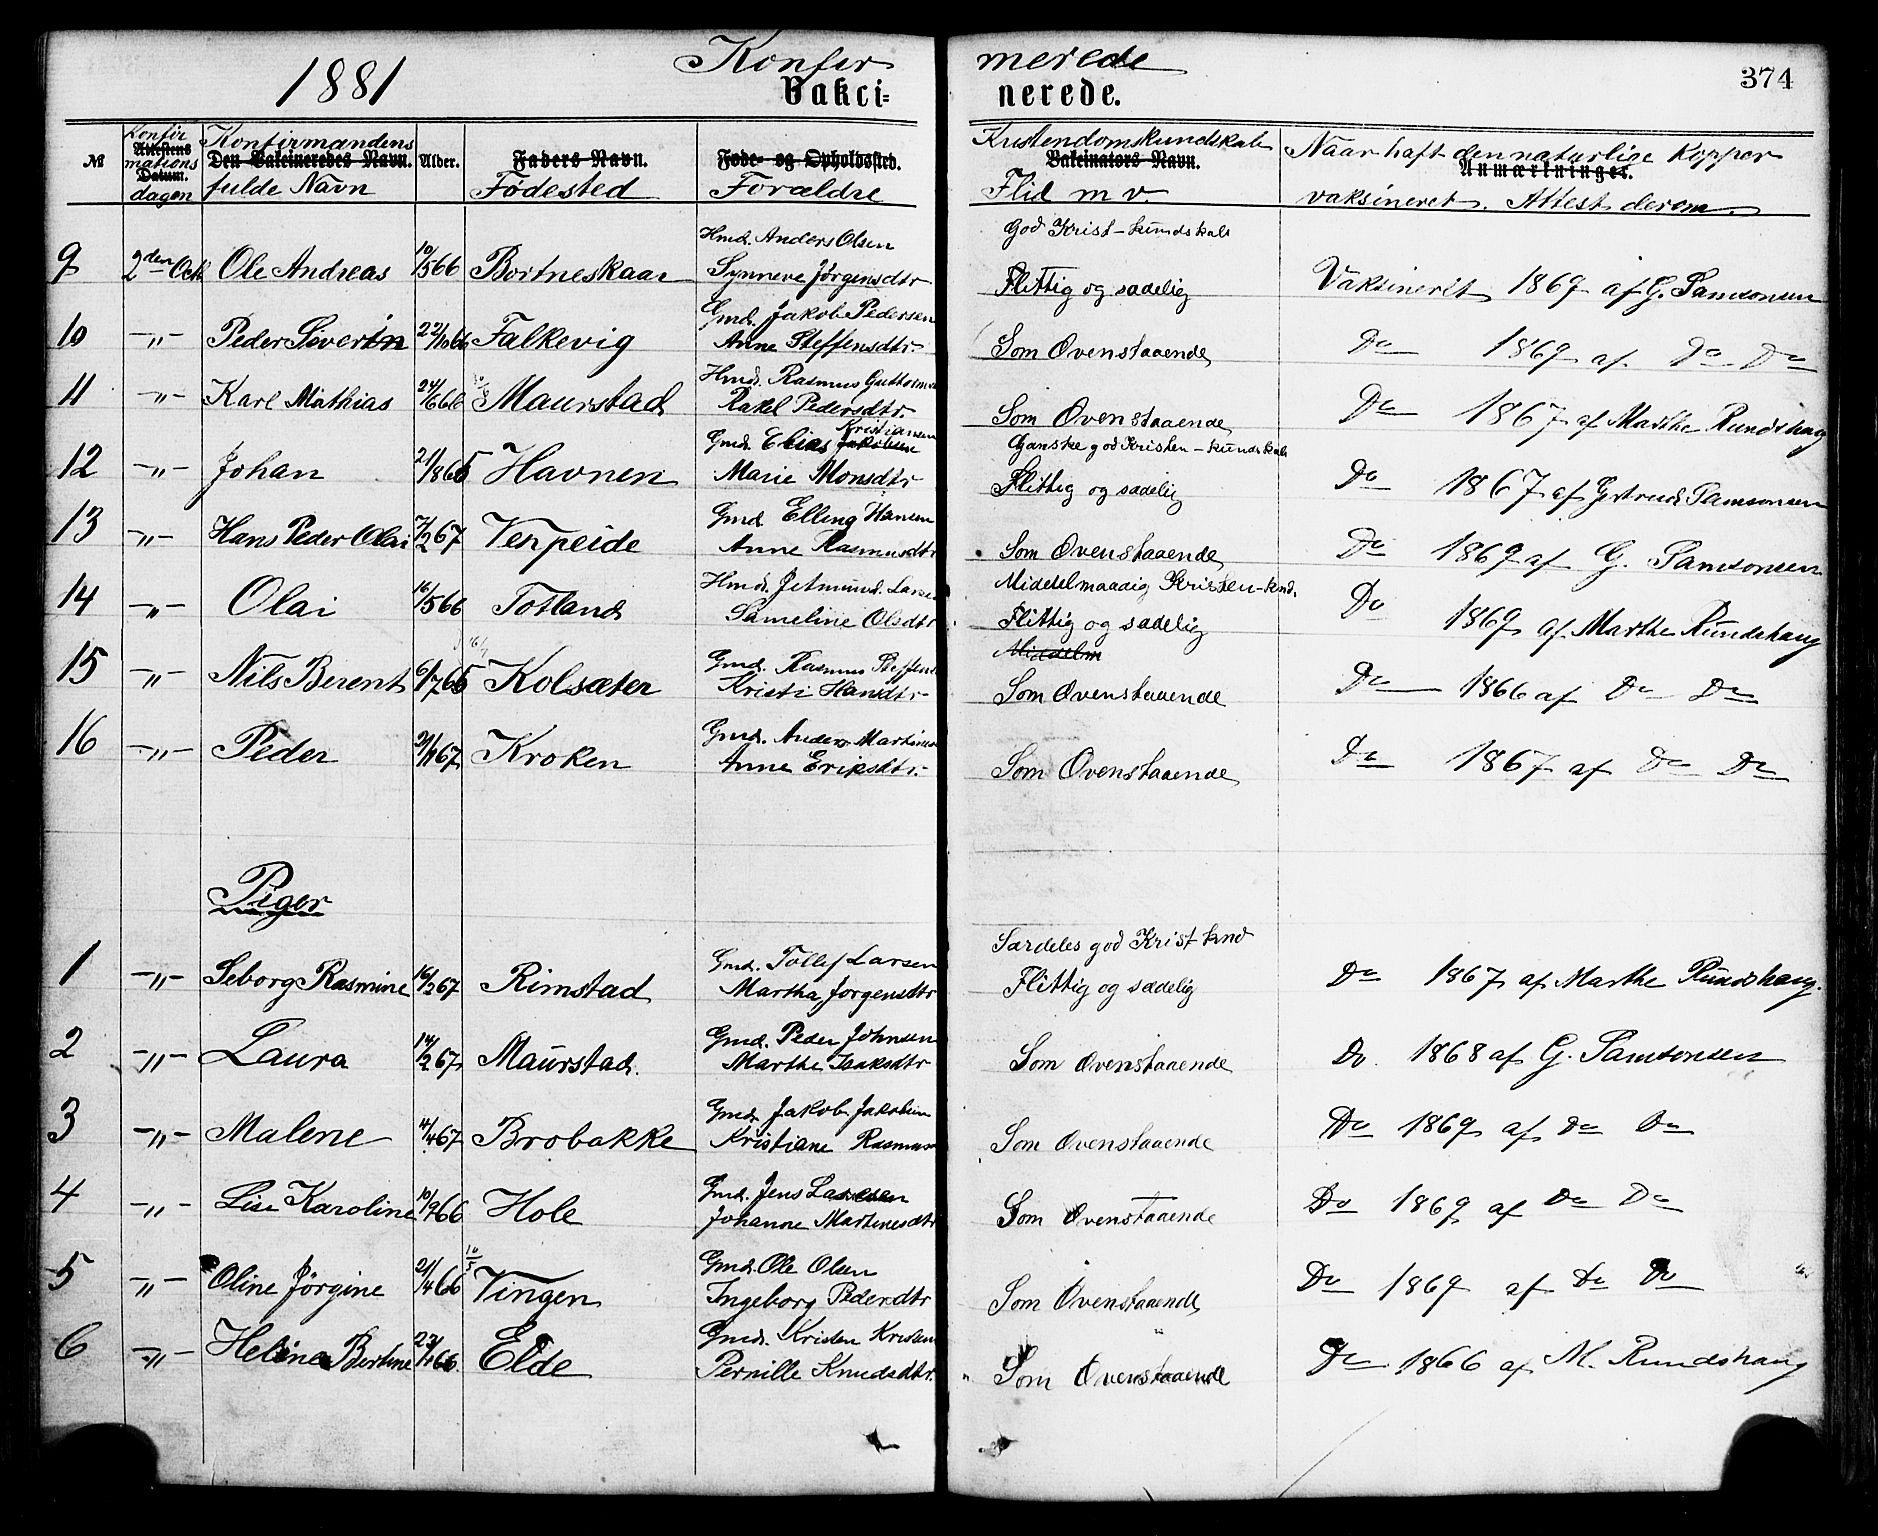 1881 Konfirmerede 374
Vakci= nerede.
№ Konfirmationsdagen Attestens Datum. Konfirmandens fulde Navn Den Vakcineredes Navn. Alder. Faders Navn. Fødested Føde- og Opholdssted. Forældre Kristendomskundskab Vakcinators Navn. Flid m v. Naar haft den naturlige Kopper Anmærkninger. vaksineret. Attest derom.
Hmd. Anders Olsen God Krist-kundskab
9 2den Oct Ole Andreas 10/5 66 Bortneskaar Synneve Jørgensdtr Flittig og sædelig Vaksineret 1869 af G. Samsonsen
Gmd. Jakob Pedersen
10 -"- Peder Siverin 22/10 66 Falkevig Anne Steffensdtr. Som Ovenstaaende Do 1869 af Do Do
Hmd. Rasmus
11 -"- Karl Mathias 24/6 66 Maurstad Rakel Pedersdtr. Som Ovenstaaende Do 1867 af Marthe Rundshaug
Gmd. Elias Jakobsen Kristiansen Ganske god Kristen-kundskab
12 -"- Johan 21/8 65 Havnen Marie Monsdtr Flittig og sædelig Do 1867 af Gertrud Samsonsen
Gmd. Elling Hansen
13 -"- Hans Peder Olai 7/2 67 Venpeide Anne Rasmusdtr Som Ovenstaaende Do 1869 af G. Samsonsen
Hmd. Jetmund Larsen Middelmaadig Kristen-knd.
14 -"- Olai 16/5 66 Totland Sameline Olsdtr Flittig og sædelig Do 1869 af Marthe Rundshaug
Middelm
Gmd. Rasmus
15 -"- Nils Berent 6/7 65 Kolsæter Kristi Hansdtr Som Ovenstaaende Do 1866 af Do Do
Gmd. Anders Martinus
16 -"- Peder 67 Kroken Anne Eriksdtr. Som Ovenstaaende Do 1867 af Do Do
Piger
Gmd. Tollef Larsen Særdeles god Krist knd
1 -"- Seborg Rasmine 16/2 67 Rimstad Martha Jørgensdtr Flittig og sædelig Do 1867 af Marthe Rundshaug.
Gmd. Peder Johnsen
2 -"- Laura 14/2 67 Maurstad. Marthe Isaksdtr Som Ovenstaaende Do. 1868 af G. Samsonsen
Gmd. Jakob Jakobsen
3 -"- Malene 4/4 67 Brobakke Kristiane Rasmus Som Ovenstaaende Do 1869 af Do Do
Gmd. Jens Lassesen
4 -"- Lise Karoline 10/9 66 Hole Johanne Martinesdtr Som Ovenstaaende Do 1869 af Do Do
Gmd. Ole Olsen
5 -"- Oline Jørgine 21/4 66 Vingen Ingeborg Pedersdtr Som Ovenstaaende Do 1869 af Do Do
Gmd. Kristen Kristen
6 -"- Heline Bertine 66. Elde Pernille Knudsdtr. Som Ovenstaaende Do 1866 af M. Rundshaug